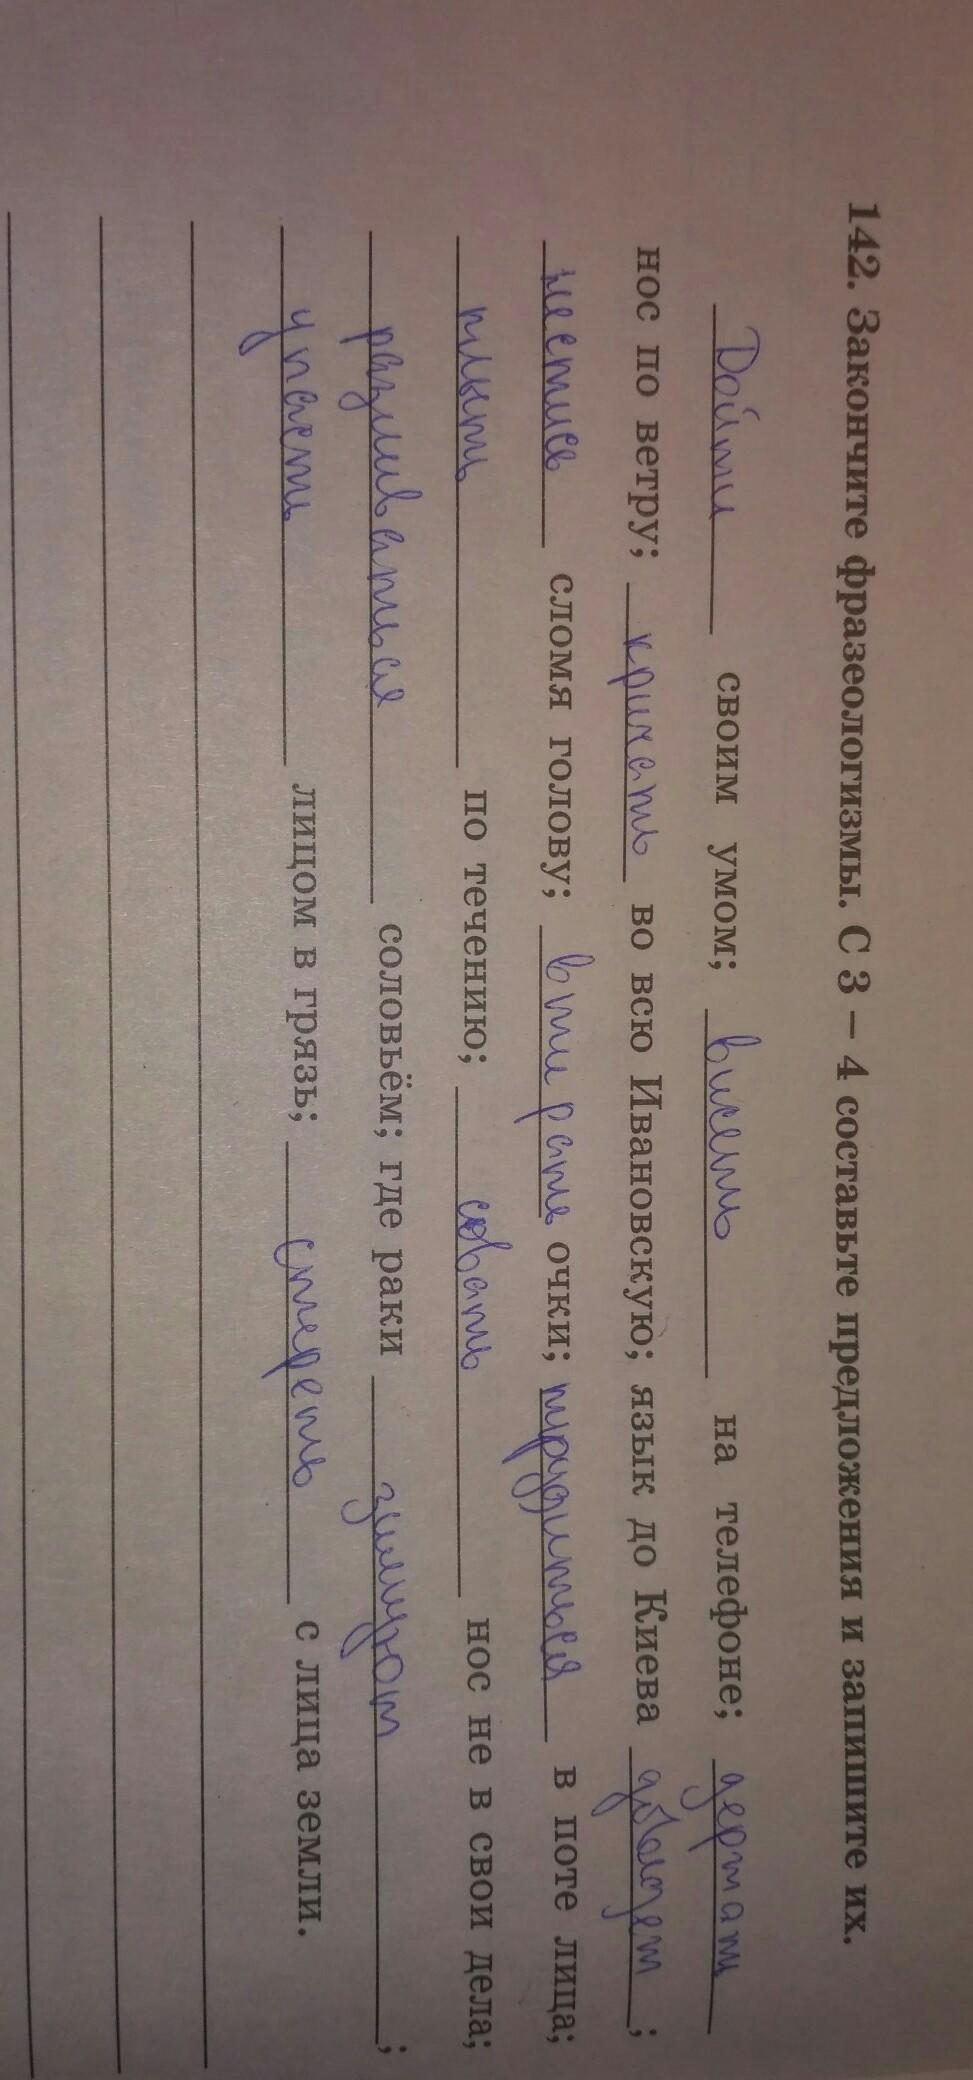 142. Закончите фразеологизмы. С 3 – 4 составьте предложения и запишите их.
Дойти своим умом; висеть на телефоне; держать
нос по ветру; кричать во всю Ивановскую; язык до Киева доведет;
нестись сломя голову; втирать очки; трудиться в поте лица;
плыть по течению; совать нос не в свои дела;
разливаться соловьём; где раки зимуют;
упасть лицом в грязь; стереть с лица земли.